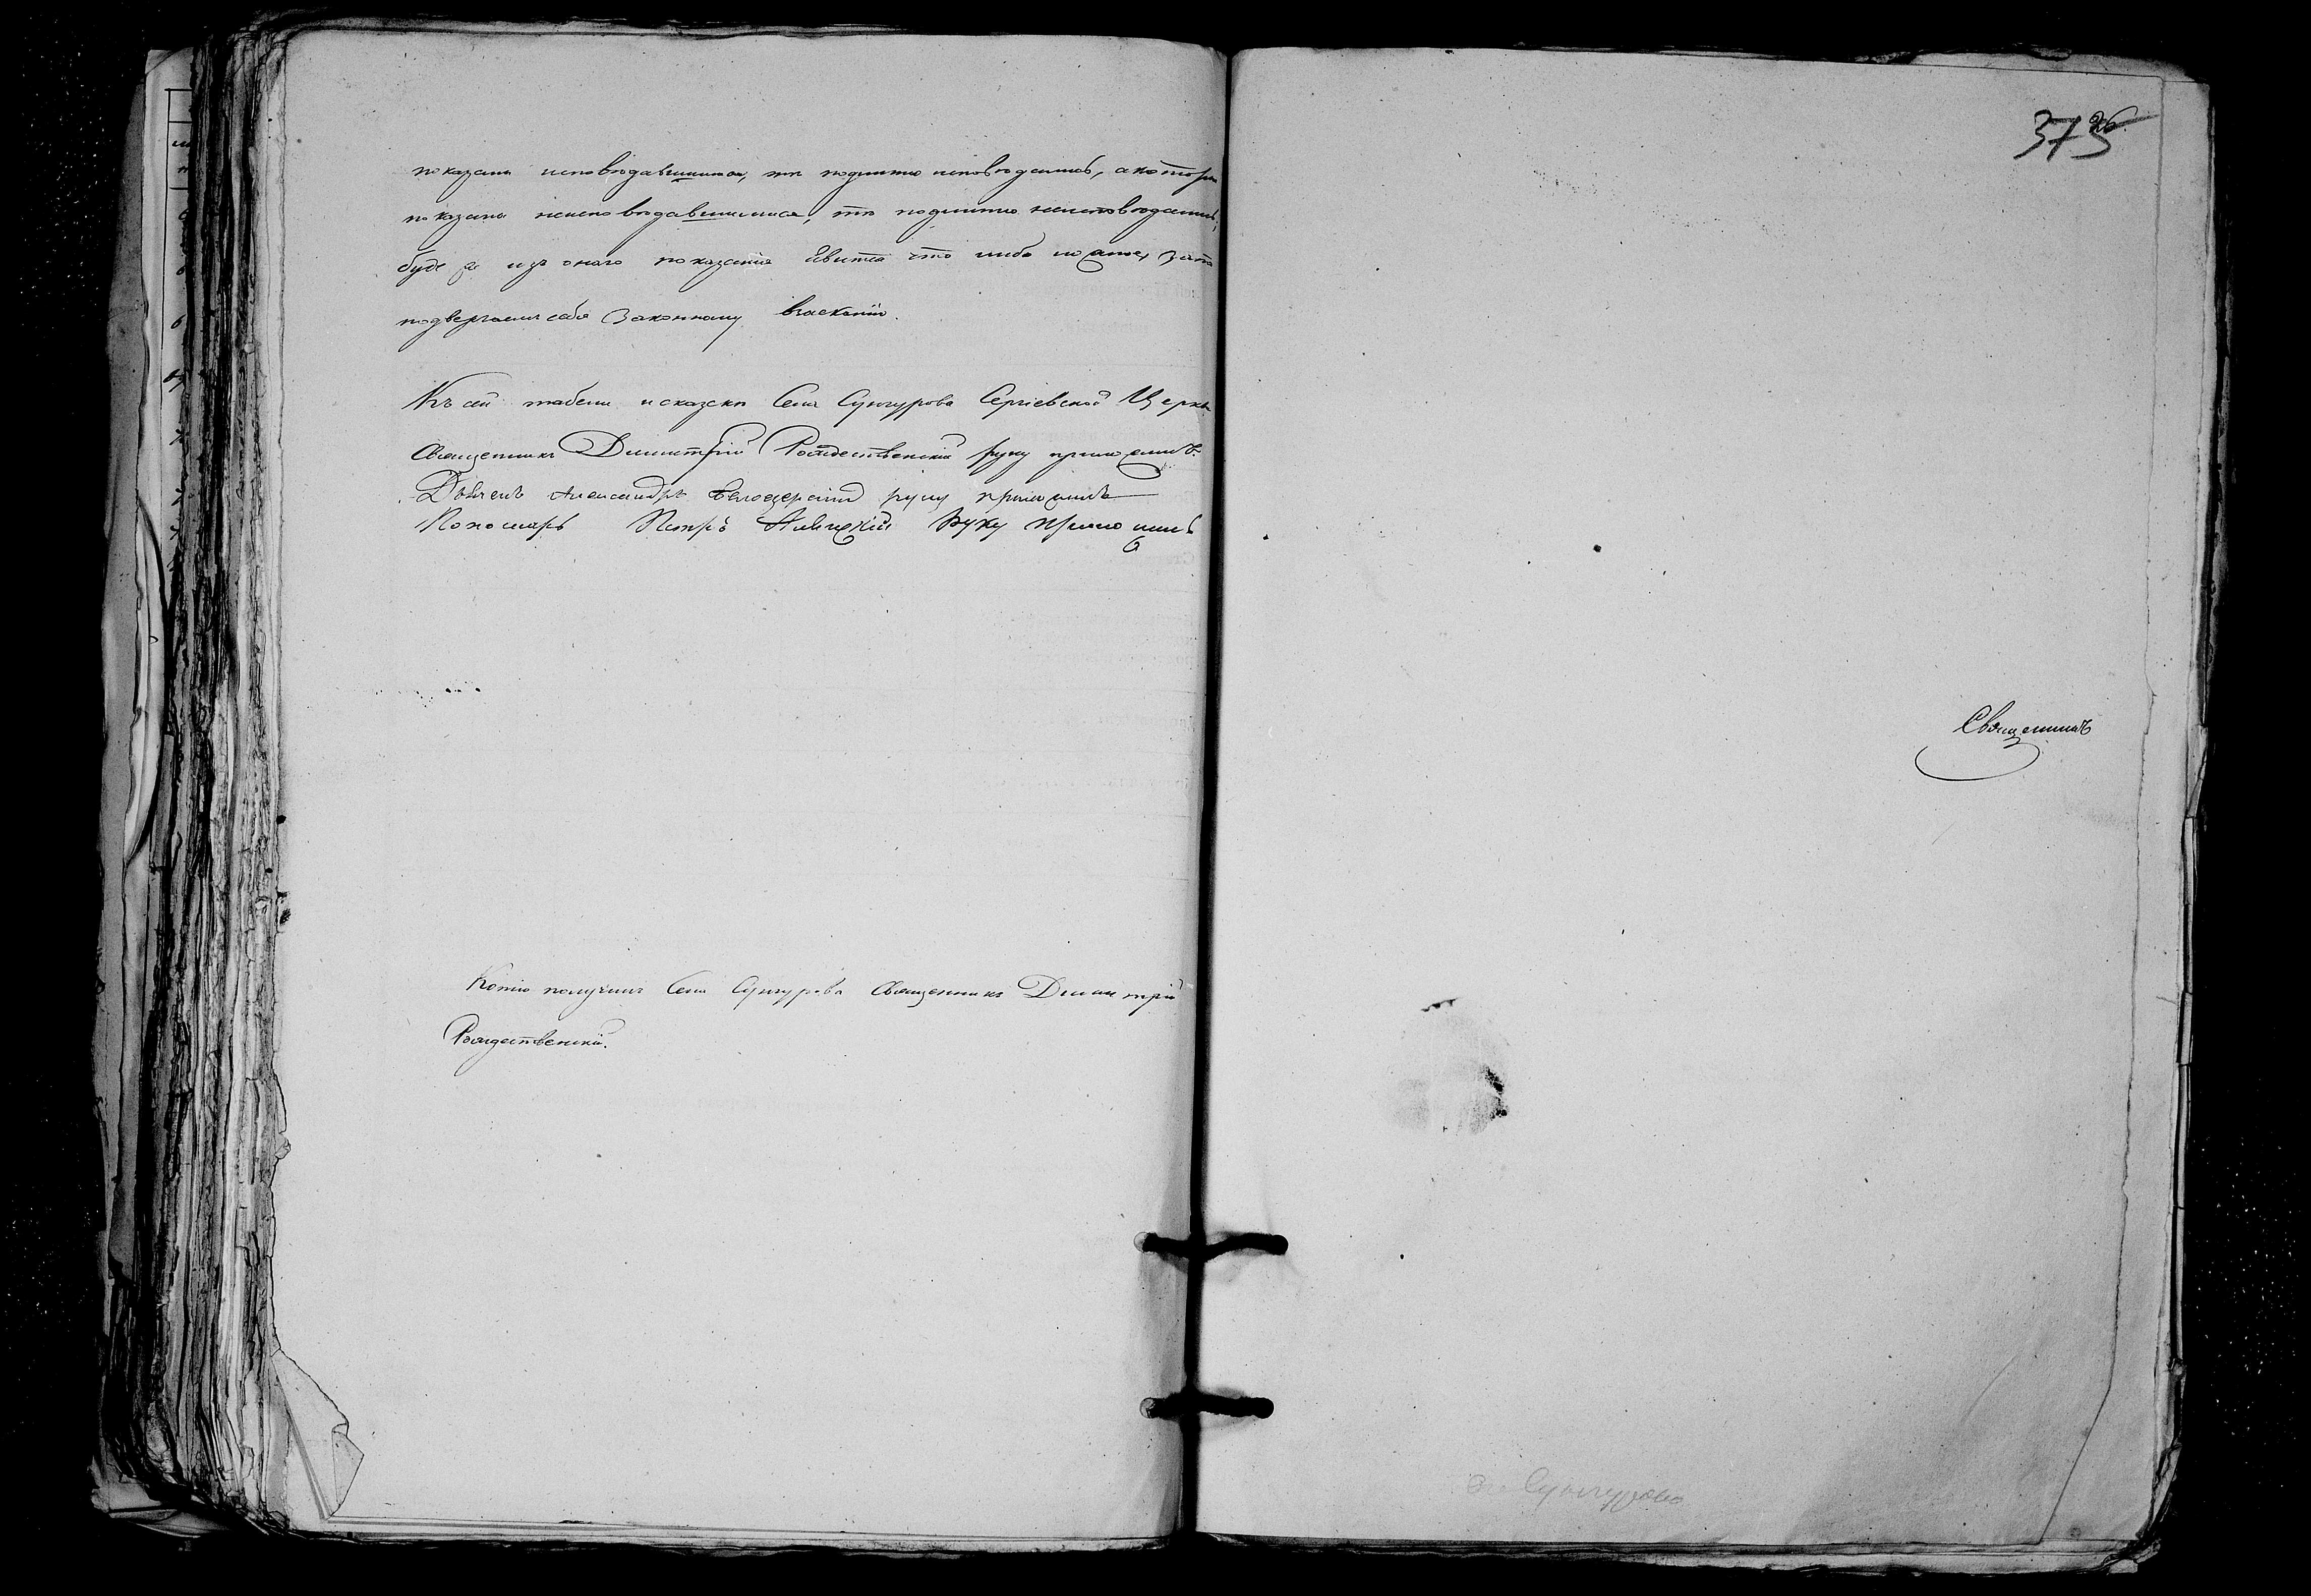 показаны исповѣдавшимися, тѣ подлинно исповѣдались, а которы
показаны неисповѣдавшимися, тѣ подлинно неисповѣдались;
буде же изъ онаго показанія явится что либо ложное, за то
подвергаемъ себя законному взысканію.
Къ сей табели и сказски Села Сунгурова Сергіевской Церкви
Священникъ Димитрій Рождественскій руку приложилъ.
Дьячекъ Александръ Белозерскій руку приложилъ
Пономарь Петръ руку приложилъ
Копію получилъ Села Сунгурова Священникъ Димитрій
Рождественскій.
373
26.
Священникъ
Сунгурово